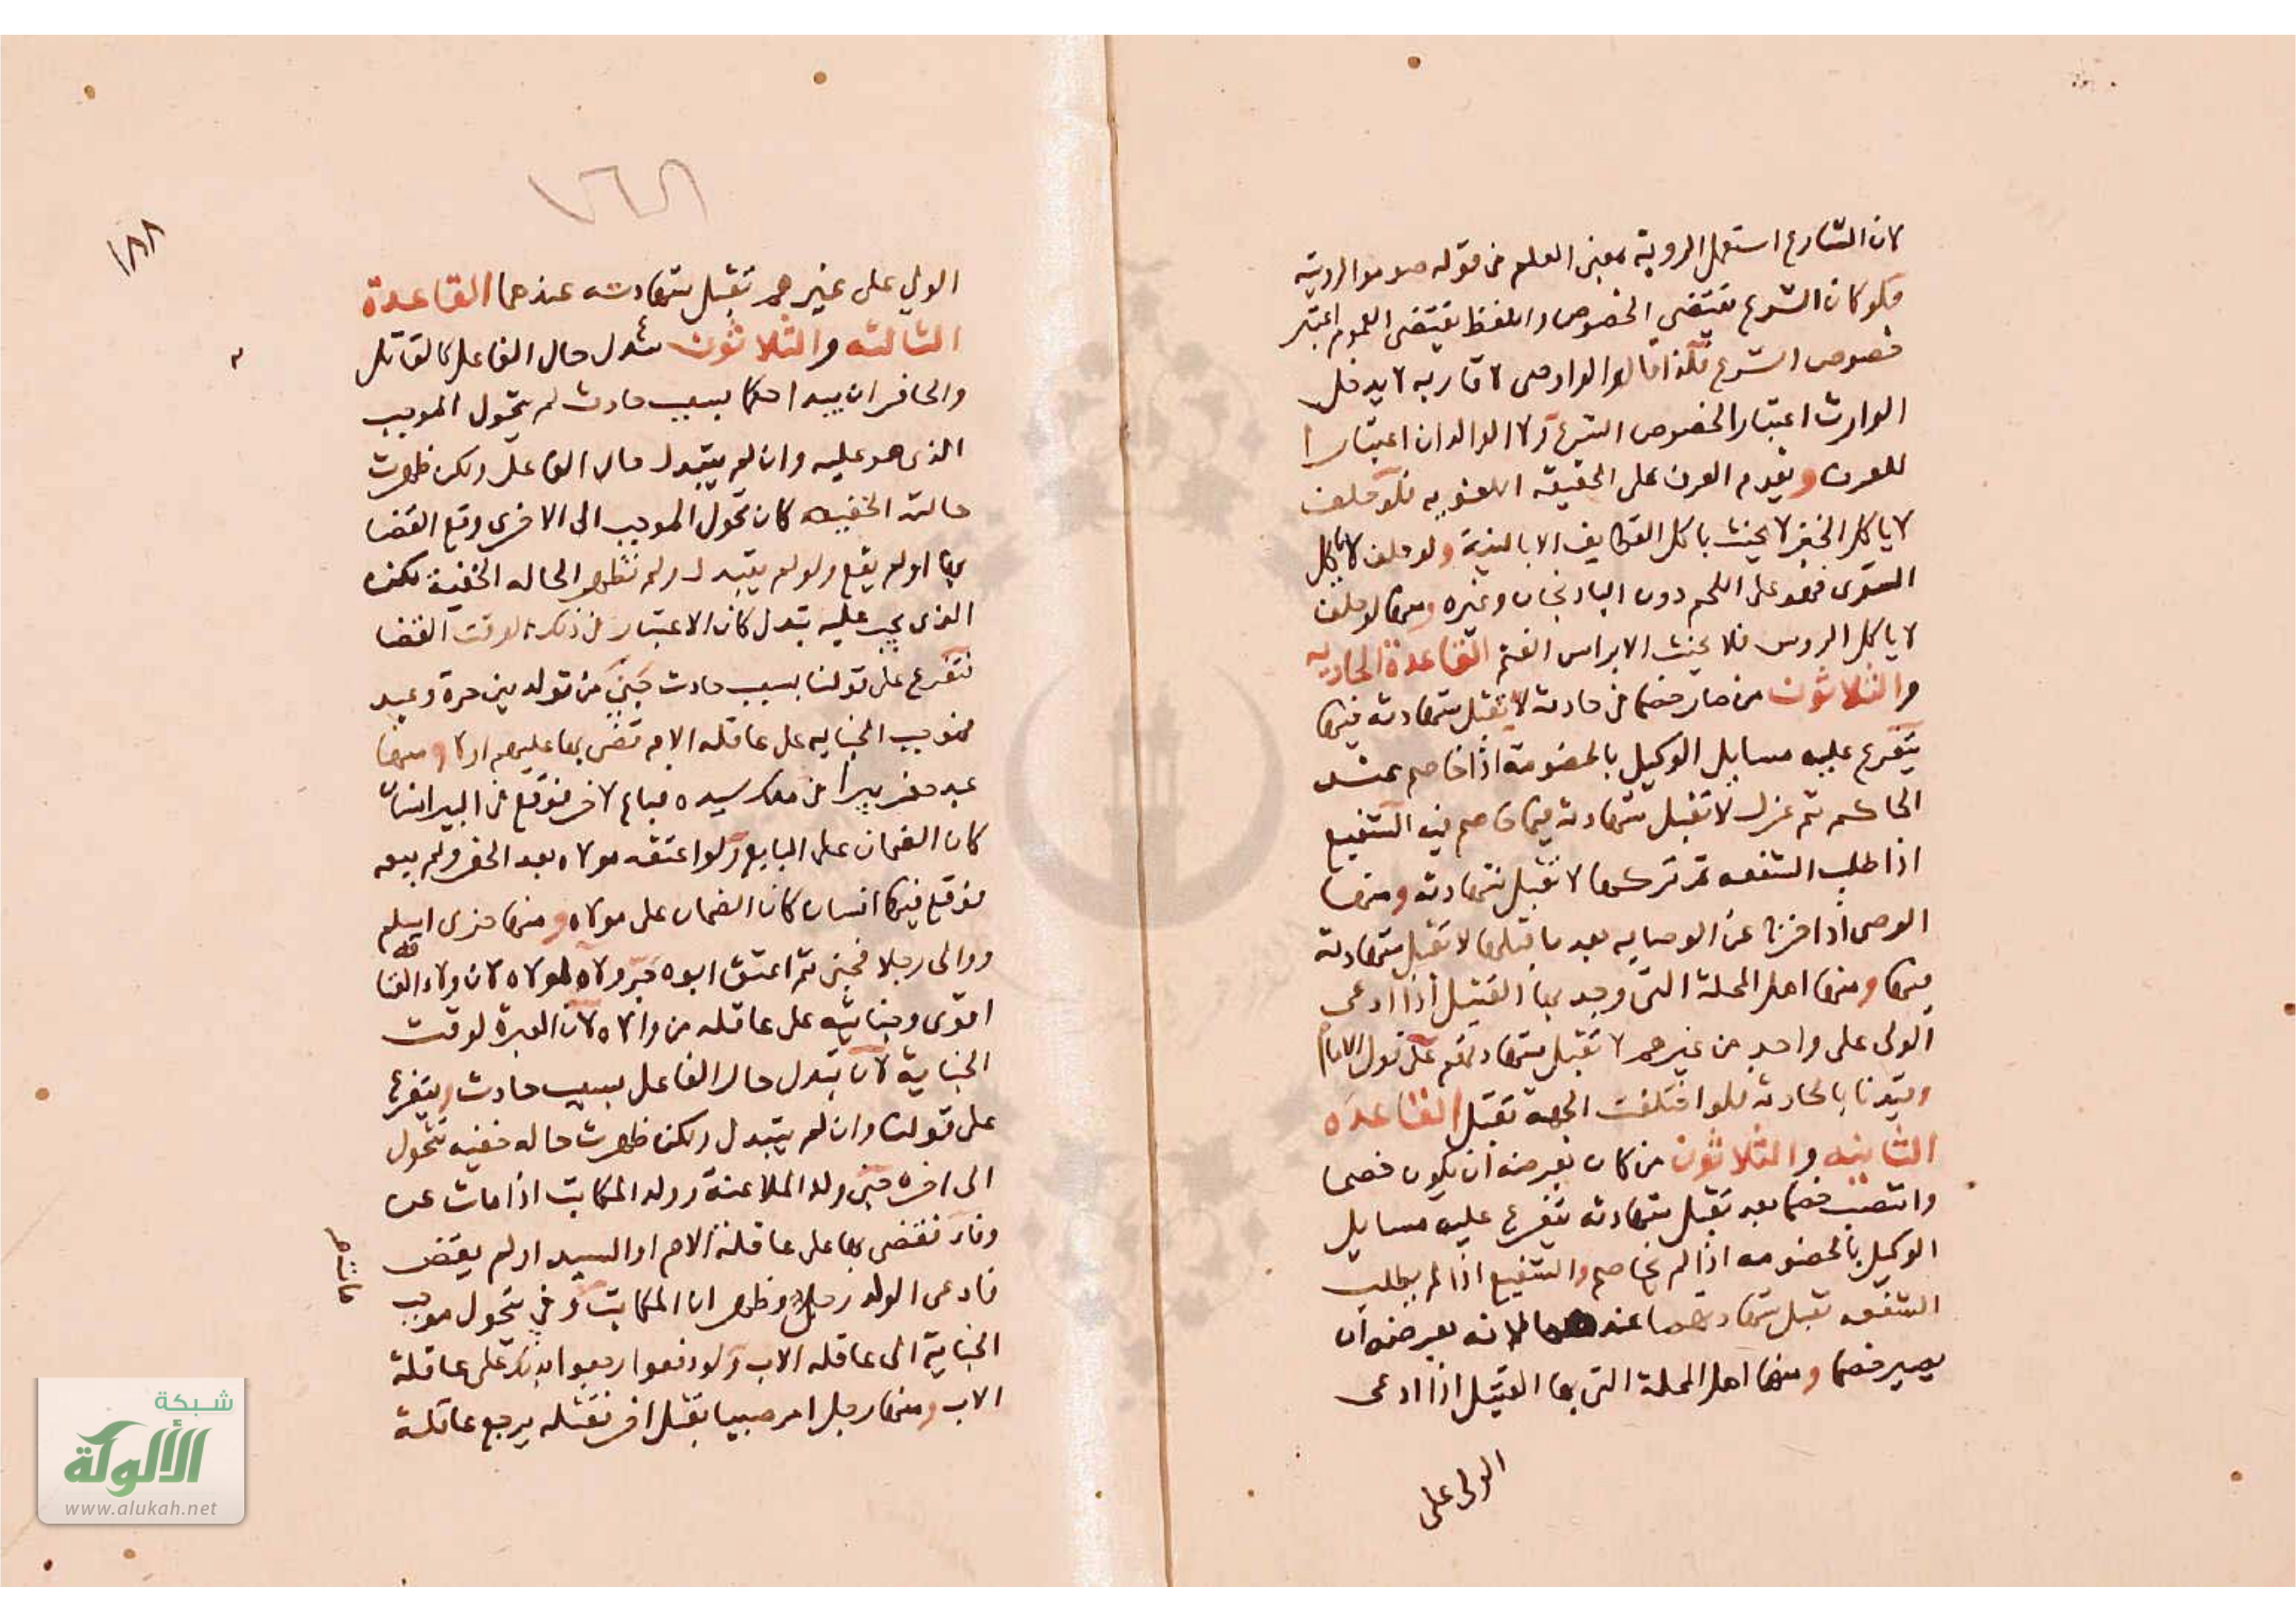 لان الشارع استعمل الروية بمعنى العلم في قوله صوموا لرويته
فلو كان الشرع يقتضي الخصوص واللفظ يقتضى العموم اعتبر
خصوص الشرع فلذا قالوا لو اوصى لاقاربه لا يدخل
الوارث اعتبارا لخصوص الشرع ولا الوالدان اعتبارا
للعرف ويقدم العرف على الحقيقة اللغويه فلو حلف
لا ياكل الخبز لا يحنث باكل القطايف الا بالنية ولو حلف لا ياكل
الشوى فهو على اللحم دون البادنجان وغيره ومنها لو حلف
لا ياكل الروس فلا يحنث الا براس الغنم القاعدة الحاديه
والثلاثون من صار خصما في حادثة لا تقبل شهادته فيها
يتفرع عليه مسايل الوكيل بالخصومة اذا خاصم عند
الحاكم ثم عزل لا تقبل شهادته فيما خاصم فيه الشفيع
اذا طلب الشفعه ثم تركها لا تقبل شهادته ومنها
الوصى اذا اخرج عن الوصايه بعد ما قبلها لا تقبل شهادته
فيها ومنها اهل المحلة التى وجد بها القتيل اذا ادعى
الولى على واحد من غيرهم لا تقبل شهادتهم على قول الامام
وقيدنا بالحادثه فلو اختلفت الجهة تقبل القاعده
الثانيه والثلاثون من كان بعرضه ان يكون خصما
وانتصب خصما بعد تقبل شهادته يتفرع عليه مسايل
الوكيل بالخصومه اذا لم يخاصم والشفيع اذا لم يطلب
الشفعه تقبل شهادتهما عندهما لانه بعرضه ان
يصير خصما ومنها اهل المحلة التى بها القتيل اذا ادعى
الولى على
١٦٨
١٨٨
الولي على غيرهم تقبل شهادته عندهما القاعدة
الثالثه والثلاثون تبدل حال الفاعل كالقاتل
والحافر ان يبدا حكما بسبب حادث لم يتحول الموجب
الذى هو عليه وان لم يتبدل حال الفاعل ولكن ظهرت
حالته الخفيه كان تحول الموجب الى الاخرى وقع القضا
بها او لم يقع ولو لم يتبدل ولم تظهر الحاله الخفية لكنه
الذى يجب عليه تبدل كان الاعتبار في ذلك لوقت القضا
فتفرع على قولنا بسبب حادث جنى من تولد بين حرة وعبد
فموجب الجنايه على عاقلة الام قضى بها عليهم او لا ومنها
عبد حفر بيرا في ملك سيده فباع لاخر فوقع في البير انسان
كان الضمان على البايع ولو اعتقه مولاه بعد الحفر ولم يبيعه
فوقع فيها انسان كان الضمان على مولاه ومنها حربى اسلم
ووالى رجلا فجنى ثم اعتق ابوه جر ولاه لمولاه لان ولاء العتاقة
اقوى وجنايته على عاقلة من والاه لان العبرة لوقت
الجناية لان تبدل حال الفاعل بسبب حادث ويتفرع
على قولنا وان لم يتبدل ولكن ظهرت حاله خفيه تتحول
الى اخره جنى ولد الملاعنة وولد المكاتب اذا مات عن
وفا فقضى بها على عاقلة الام او السيد او لم يقض
فادعى الولد رجل وظهر ان المكاتب وفي تتحول موجب
الجناية الى عاقله الاب ولو دفعوا رجعوا بذلك على عاقلة
الاب ومنها رجل امر صبيا بقتل اخر فقتله يرجع عاقلة
شبكة
الألوكة
www.alukah.net